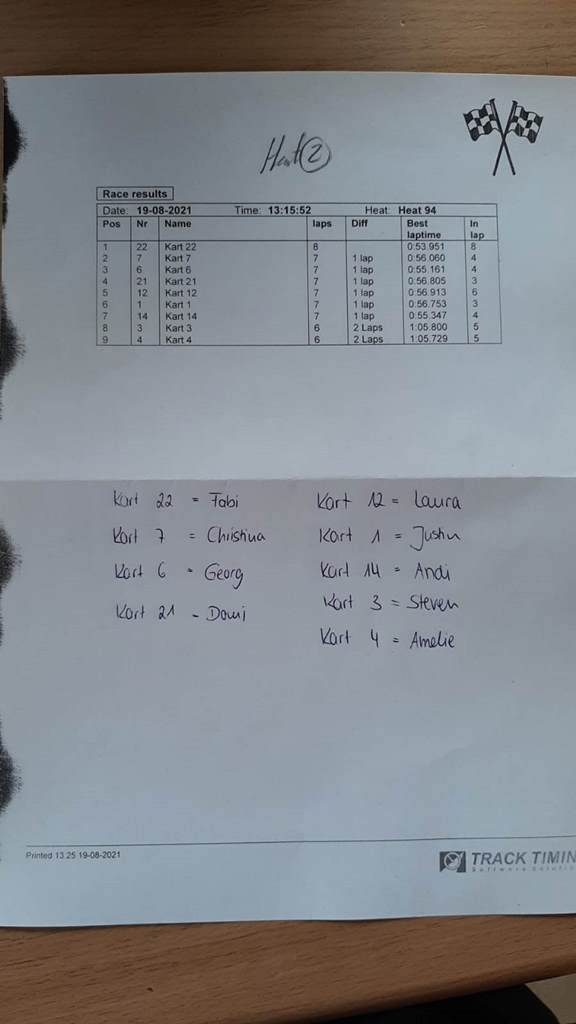 Heat ②
Race results
Date: 19-08-2021 Time: 13:15:52 Heat: Heat 94
Pos Nr Name laps Diff Best laptime In lap
1 22 Kart 22 8 0:53.951 8
2 7 Kart 7 7 1 lap 0:56.060 4
3 6 Kart 6 7 1 lap 0:55.161 4
4 21 Kart 21 7 1 lap 0:56.805 3
5 12 Kart 12 7 1 lap 0:56.913 6
6 1 Kart 1 7 1 lap 0:56.753 3
7 14 Kart 14 7 1 lap 0:55.347 4
8 3 Kart 3 6 2 Laps 1:05.800 5
9 4 Kart 4 6 2 Laps 1:05.729 5
Kart 22 = Fabi
Kart 7 = Christina
Kart 6 - Georg
Kart 21 - Domi
Kart 12 = Laura
Kart 1 = Justin
Kart 14 = Andi
Kart 3 = Steven
Kart 4 = Amelie
Printed 13:25 19-08-2021
TRACK TIMIN
Software Solutio